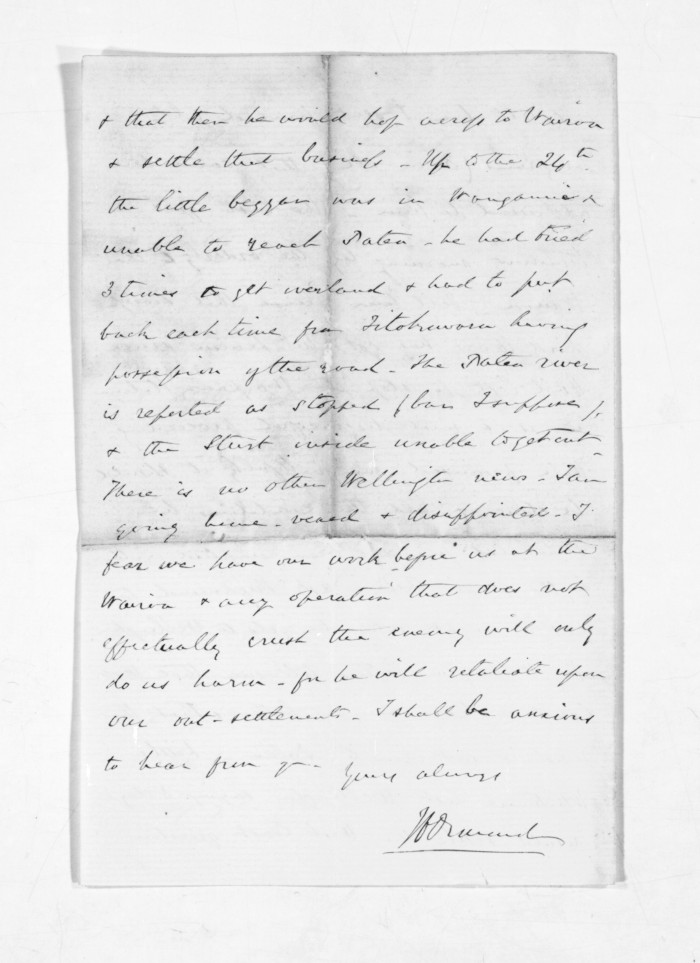 & that then he would hop across to Wairoa
& settle that business – Up to the 24th
the little beggar was in Wanganui &
unable to reach Patea – he had tried
3 times to get overland & had to put
back each time from Titokowaru having
possession of the road – The Patea river
is reported as stopped (bar I suppose),
& the Sturt inside unable to get out –
There is no other Wellington news – I am
going home – vexed & disappointed – I
fear we have our work before us at the
Wairoa & any operation that does not
effectually crush the enemy will only
do us harm – for he will retaliate upon
our out-settlements – I shall be anxious
to hear from you –
Yours always
JD Ormond